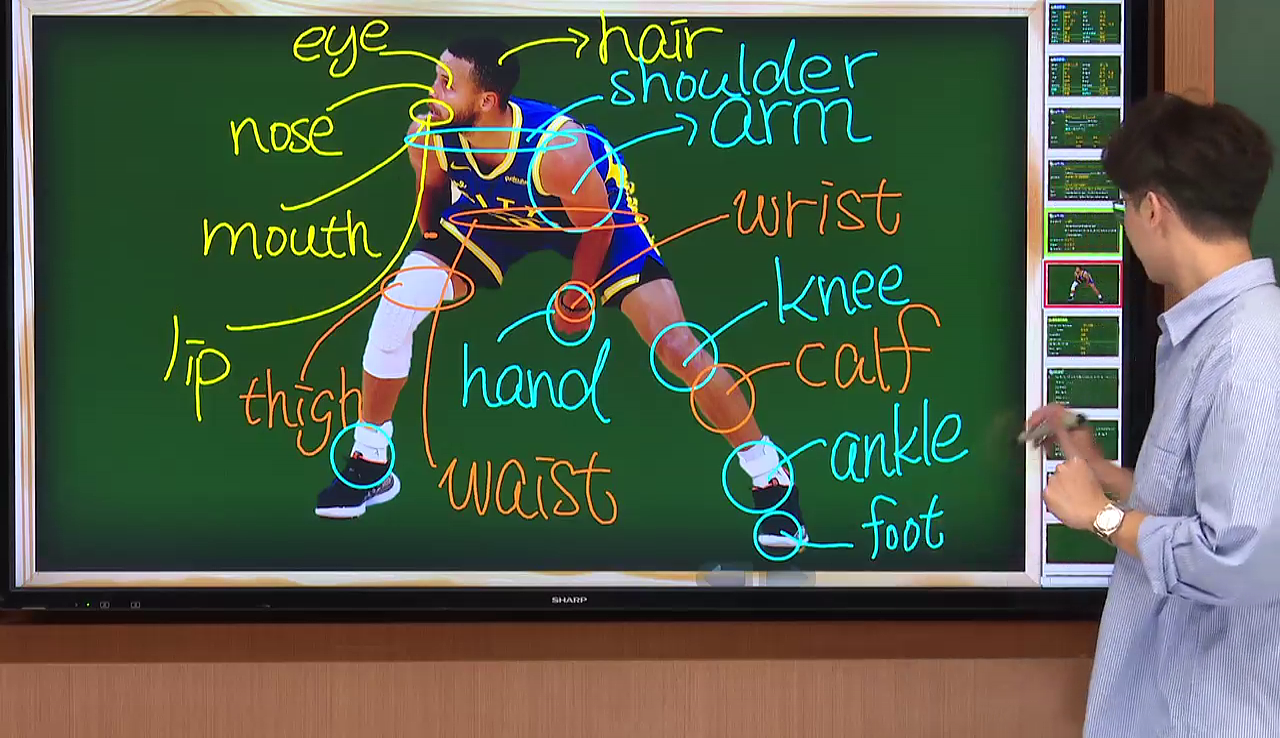 eye
hair
shoulder
nose
arm
wrist
mouth
knee
lip
thigh
hand
calf
waist
ankle
foot
SHARP